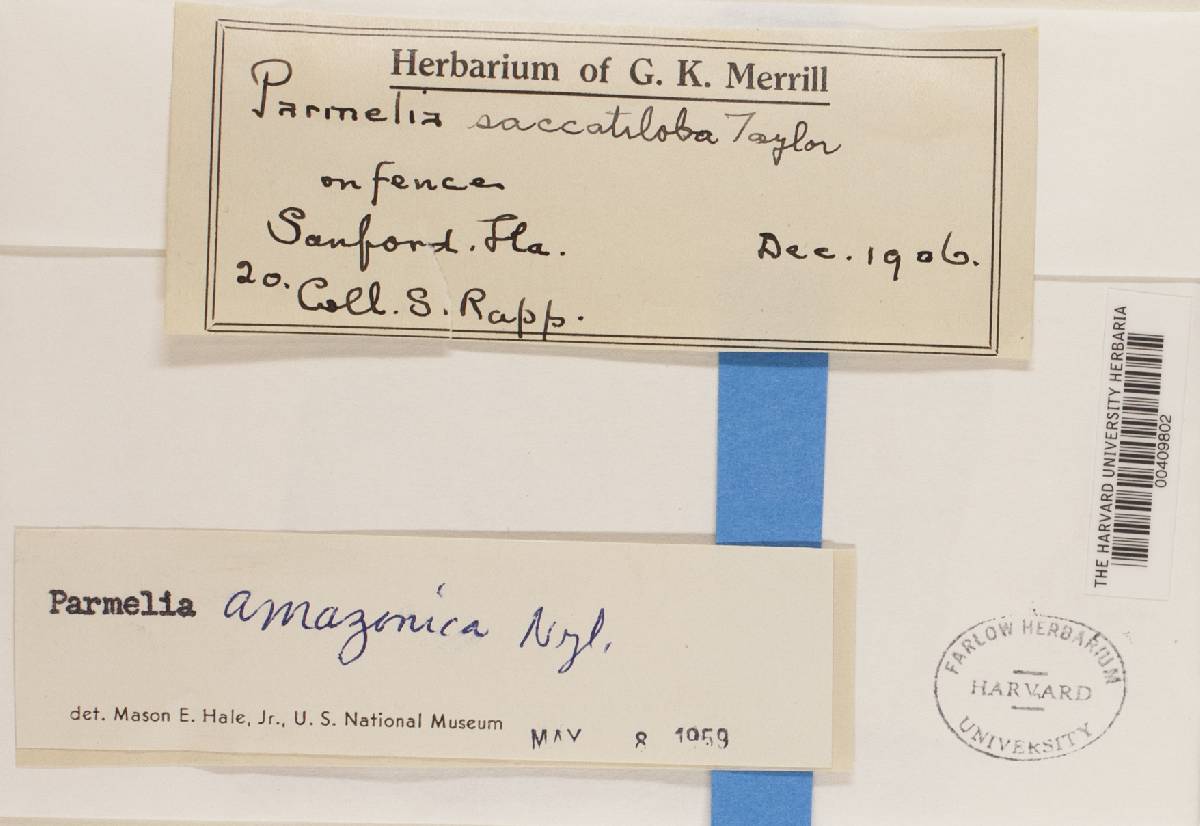 Herbarium of G. K. Merrill
Parmelia saccatiloba Taylor
on fences
Sanford. Fla.
Dec. 1906.
20. Coll. S. Rapp.
THE HARVARD UNIVERSITY HERBARIA
00409802
Parmelia amazonica Nyl.
det. Mason E. Hale, Jr., U. S. National Museum
MAY 8 1959
FARLOW HERBARIUM
HARVARD
UNIVERSITY